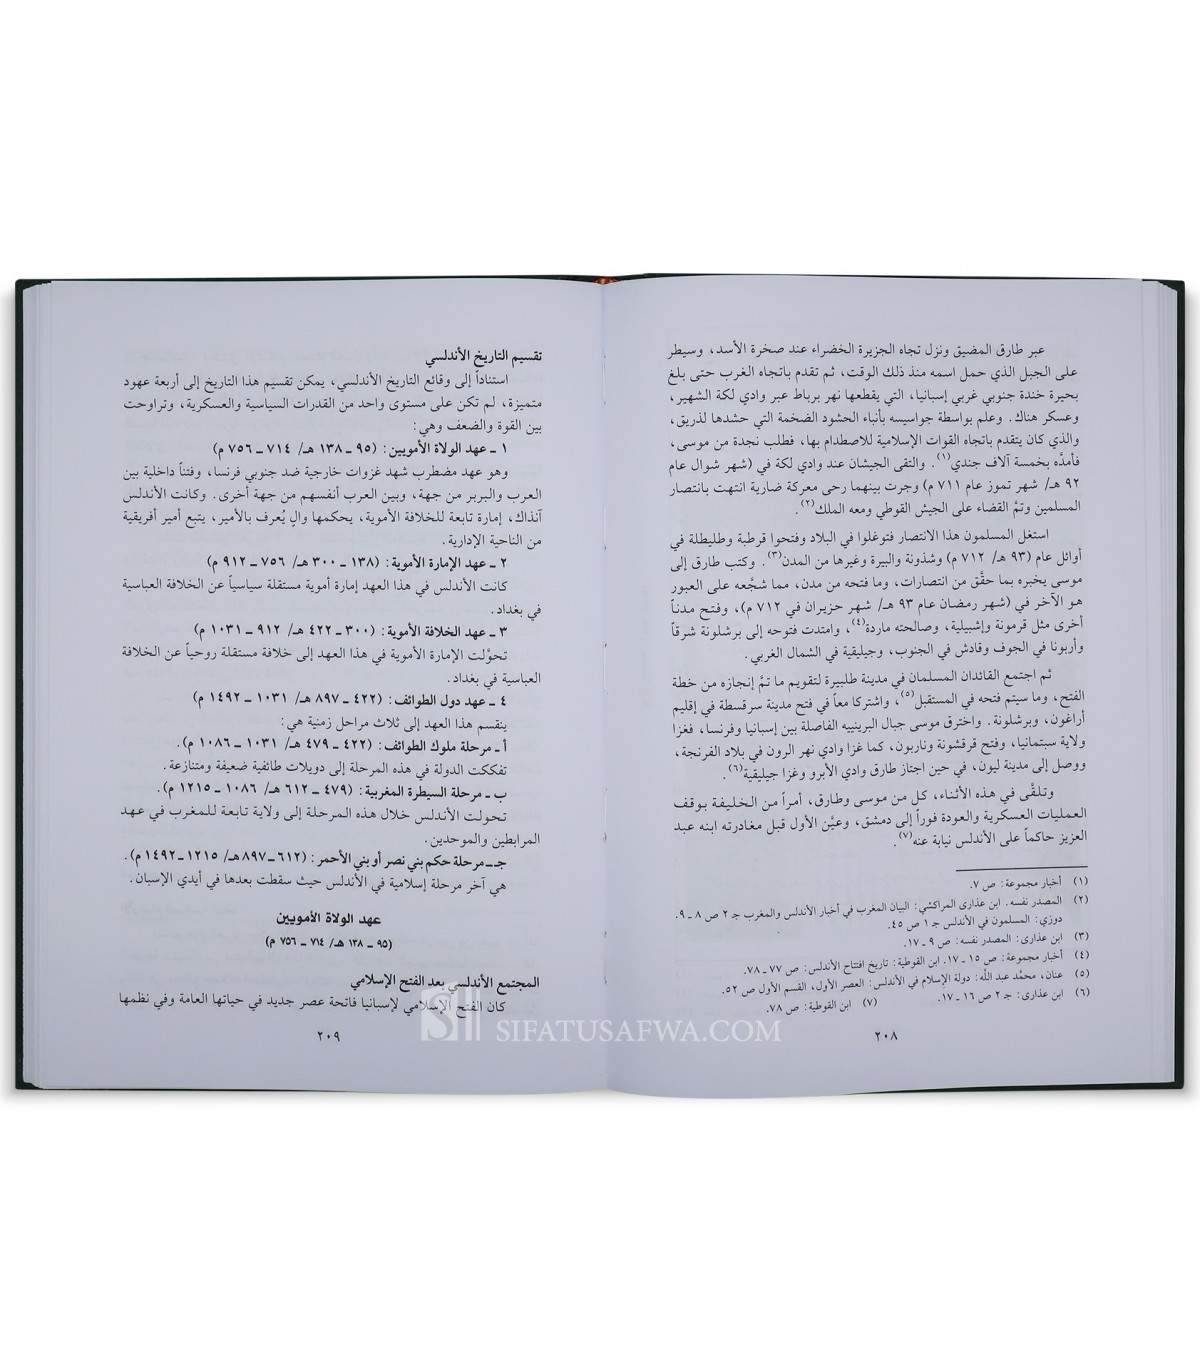 عبر طارق المضيق ونزل تجاه الجزيرة الخضراء عند صخرة الأسد، وسيطر
على الجبل الذي حمل اسمه منذ ذلك الوقت، ثم تقدم باتجاه الغرب حتى بلغ
بحيرة خندة جنوبي غربي إسبانيا، التي يقطعها نهر برباط عبر وادي لكة الشهير،
وعسكر هناك. وعلم بواسطة جواسيسه بأنباء الحشود الضخمة التي حشدها لذريق،
والذي كان يتقدم باتجاه القوات الإسلامية للاصطدام بها، فطلب نجدة من موسى،
فأمدَّه بخمسة آلاف جندي(١). والتقى الجيشان عند وادي لكة في (شهر شوال عام
٩٢ هـ/ شهر تموز عام ٧١١ م) وجرت بينهما رحى معركة ضارية انتهت بانتصار
المسلمين وتمَّ القضاء على الجيش القوطي ومعه الملك(٢).
استغل المسلمون هذا الانتصار فتوغلوا في البلاد وفتحوا قرطبة وطليطلة في
أوائل عام (٩٣ هـ/ ٧١٢ م) وشذونة والبيرة وغيرها من المدن(٣). وكتب طارق إلى
موسى يخبره بما حقَّق من انتصارات، وما فتحه من مدن، مما شجَّعه على العبور
هو الآخر في (شهر رمضان عام ٩٣ هـ/ شهر حزيران في ٧١٢ م)، وفتح مدناً
أخرى مثل قرمونة وإشبيلية، وصالحته ماردة(٤)، وامتدت فتوحه إلى برشلونة شرقاً
وأربونا في الجوف وقادش في الجنوب، وجيليقية في الشمال الغربي.
ثم اجتمع القائدان المسلمان في مدينة طلبيرة لتقويم ما تمَّ إنجازه من خطة
الفتح، وما سيتم فتحه في المستقبل(٥)، واشتركا معاً في فتح مدينة سرقسطة في إقليم
أراغون، وبرشلونة. واخترق موسى جبال البرينييه الفاصلة بين إسبانيا وفرنسا، فغزا
ولاية سبتمانيا، وفتح قرقشونة وناربون، كما غزا وادي نهر الرون في بلاد الفرنجة،
ووصل إلى مدينة ليون، في حين اجتاز طارق وادي الأبرو وغزا جيليقية(٦).
وتلقَّى في هذه الأثناء، كل من موسى وطارق، أمراً من الخليفة بوقف
العمليات العسكرية والعودة فوراً إلى دمشق، وعيَّن الأول قبل مغادرته ابنه عبد
العزيز حاكماً على الأندلس نيابة عنه(٧).
(١) أخبار مجموعة: ص ٧.
(٢) المصدر نفسه. ابن عذارى المراكشي: البيان المغرب في أخبار الأندلس والمغرب جـ ٢ ص ٨ ـ ٩.
دوزي: المسلمون في الأندلس جـ ١ ص ٤٥.
(٣) ابن عذارى: المصدر نفسه: ص ٩ ـ ١٧.
(٤) أخبار مجموعة: ص ١٥ ـ ١٧. ابن القوطية: تاريخ افتتاح الأندلس: ص ٧٧ ـ ٧٨.
(٥) عنان، محمَّد عبد اللَّه: دولة الإسلام في الأندلس: العصر الأول، القسم الأول ص ٥٢.
(٦) ابن عذارى: جـ ٢ ص ١٦ ـ ١٧. (٧) ابن القوطية: ص ٧٨.
٢٠٨
تقسيم التاريخ الأندلسي
استناداً إلى وقائع التاريخ الأندلسي، يمكن تقسيم هذا التاريخ إلى أربعة عهود
متميزة، لم تكن على مستوى واحد من القدرات السياسية والعسكرية، وتراوحت
بين القوة والضعف وهي:
١ ـ عهد الولاة الأمويين: (٩٥ ـ ١٣٨ هـ/ ٧١٤ ـ ٧٥٦ م)
وهو عهد مضطرب شهد غزوات خارجية ضد جنوبي فرنسا، وفتناً داخلية بين
العرب والبربر من جهة، وبين العرب أنفسهم من جهة أخرى. وكانت الأندلس
آنذاك، إمارة تابعة للخلافة الأموية، يحكمها والٍ يُعرف بالأمير، يتبع أمير أفريقية
من الناحية الإدارية.
٢ ـ عهد الإمارة الأموية: (١٣٨ ـ ٣٠٠ هـ/ ٧٥٦ ـ ٩١٢ م)
كانت الأندلس في هذا العهد إمارة أموية مستقلة سياسياً عن الخلافة العباسية
في بغداد.
٣ ـ عهد الخلافة الأموية: (٣٠٠ ـ ٤٢٢ هـ/ ٩١٢ ـ ١٠٣١ م)
تحوَّلت الإمارة الأموية في هذا العهد إلى خلافة مستقلة روحياً عن الخلافة
العباسية في بغداد.
٤ ـ عهد دول الطوائف: (٤٢٢ ـ ٨٩٧ هـ/ ١٠٣١ ـ ١٤٩٢ م)
ينقسم هذا العهد إلى ثلاث مراحل زمنية هي:
أ ـ مرحلة ملوك الطوائف: (٤٢٢ ـ ٤٧٩ هـ/ ١٠٣١ ـ ١٠٨٦ م).
تفككت الدولة في هذه المرحلة إلى دويلات طائفية ضعيفة ومتنازعة.
ب ـ مرحلة السيطرة المغربية: (٤٧٩ ـ ٦١٢ هـ/ ١٠٨٦ ـ ١٢١٥ م).
تحولت الأندلس خلال هذه المرحلة إلى ولاية تابعة للمغرب في عهد
المرابطين والموحدين.
جـ ـ مرحلة حكم بني نصر أو بني الأحمر: (٦١٢ ـ ٨٩٧ هـ/ ١٢١٥ ـ ١٤٩٢ م).
هي آخر مرحلة إسلامية في الأندلس حيث سقطت بعدها في أيدي الإسبان.
عهد الولاة الأمويين
(٩٥ ـ ١٣٨ هـ/ ٧١٤ ـ ٧٥٦ م)
المجتمع الأندلسي بعد الفتح الإسلامي
كان الفتح الإسلامي لإسبانيا فاتحة عصر جديد في حياتها العامة وفي نظمها
٢٠٩
SIFATUSAFWA.COM